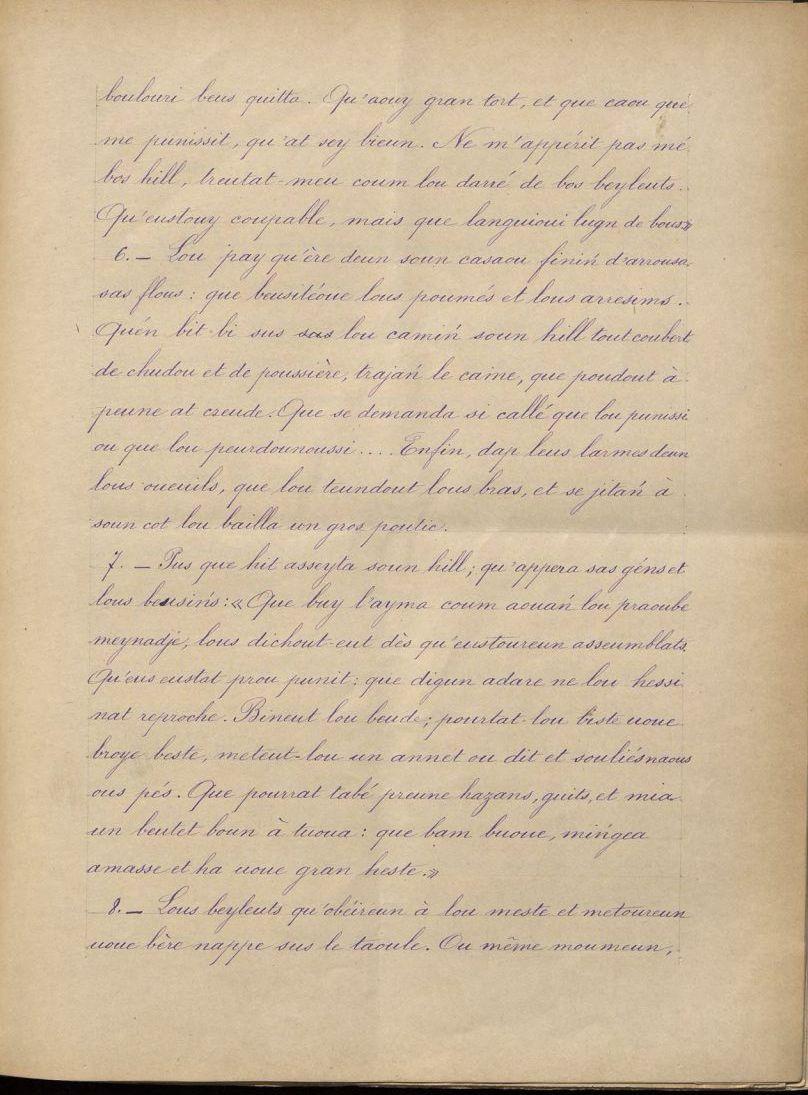 boulouri beus quitta. Qu'aouy gran tort, et que caou que
me punissit, qu'at sey bieun. Ne m'appérit pas mé
bos hill, treutat-meu coum lou darré de bos beyleuts.
Qu'eustouy coupable, mais que languioui lugn de bous»
6.— Lou pay qu'ère deun soun casaou finiń d'arrousa
sas flous: que beusitéoue lous poumés et lous arresims.
Quén bit-bi sus sas lou camiń soun hill tout coubert
de chudou et de poussière, trajań le caine, que poudout à
peune at creude. Que se demanda si callé que lou punissi
ou que lou peurdounoussi.... Enfin, dap leus larmes deun
lous oueuils, que lou teundout lous bras, et se jitań à
soun cot lou bailla un gros poutic.
7.— Pus que hit asseyta soun hill; qu'appera sas géns et
lous beusińs: « Que buy l'ayma coum aouań lou praoube
meynadje, lous dichout-eut dès qu'eustoureun asseumblats.
Qu'eus eustat prou punit: que digun adare ne lou hessi
nat reproche. Bineut lou beude; pourtat-lou biste uoue
broye beste, meteut-lou un annet ou dit et souliés naous
ous pés. Que pourrat tabé preune hazans, guits, et mia
un beutet boun à tuoua: que bam buoue, mińgea
amasse et ha uoue gran heste.»
8.— Lous beyleuts qu'obéireun à lou meste et metoureun
uoue bère nappe sus le taoule. Ou même moumeun,